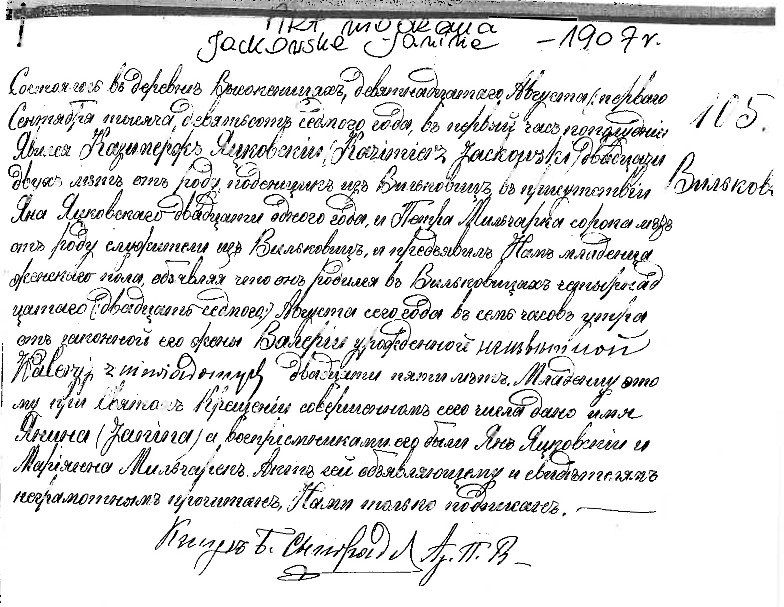 Akt urodzenia
Jackowska Janina - 1907 r.
105.
Вильков
Состоялось въ деревнѣ Высокеницахъ, девятнадцатаго Августа (: перваго
Сентября тысяча девятьсотъ седмого года, въ первый часъ пополудни
Явился Казимержъ Яцковскій, (Kazimierz Jackowski) двадцати
двухъ лѣтъ отъ роду, поденщикъ изъ Вильковицъ, въ присутствіи
Яна Яцковскаго двадцати одного года, и Петра Мильчарка сорока лѣтъ
отъ роду служители изъ Вильковицъ, и предъявилъ Намъ младенца
женскаго пола, объявляя что онъ родился въ Вильковицахъ четырнад
цатаго (: двадцать седмого:) Августа сего года въ семь часовъ утра
отъ законной его жены Валеріи урожденной неизвѣстной
Waleryj z niewiadomych двадцати пяти лѣтъ. Младенцу это
му при Святомъ Крещеніи совершенномъ сего числа дано имя
Янина (Janina) а воспріемниками его были Янъ Яцковскій и
Маріянна Мильчарекъ. Актъ сей объявляющему и свидѣтелямъ
неграмотнымъ прочитанъ, Нами только подписанъ.
Ксендзъ Б.